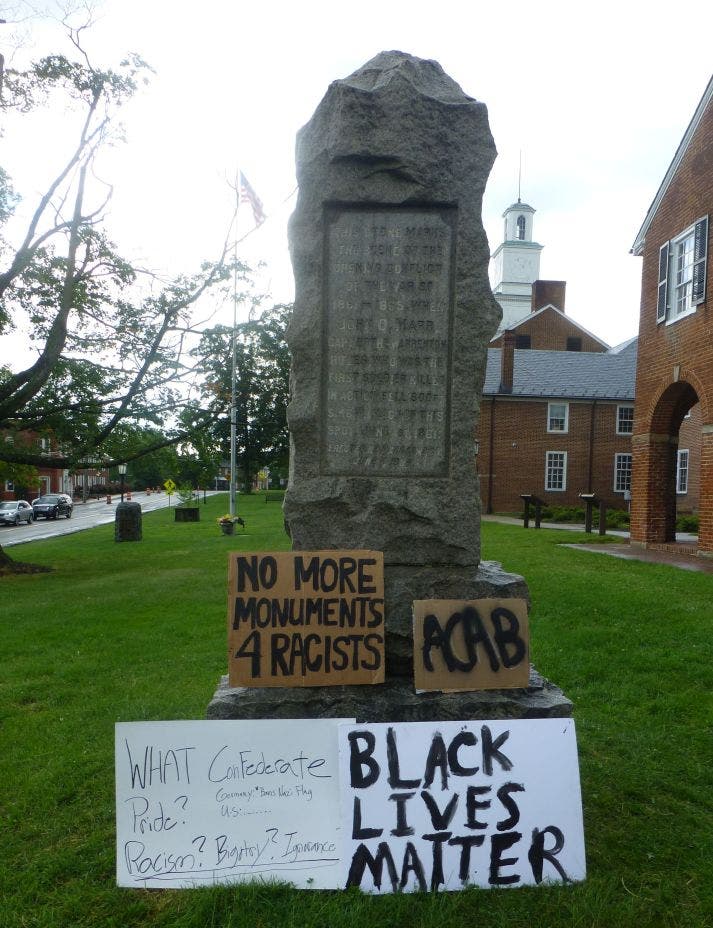 THIS STONE MARKS
THE SCENE OF THE
OPENING CONFLICT
OF THE WAR OF
1861 - 1865, WHEN
JOHN Q. MARR
CAPT. OF THE WARRENTON
RIFLES, WHO WAS THE
FIRST SOLDIER KILLED
IN ACTION, FELL 800 FT.
OF THIS
SPOT, JUNE 1, 1861.
NO MORE
MONUMENTS
4 RACISTS
ACAB
WHAT Confederate
Pride?
Germany: Bans Nazi Flag
U.S:........
Racism? Bigotry? Ignorance
BLACK
LIVES
MATTER